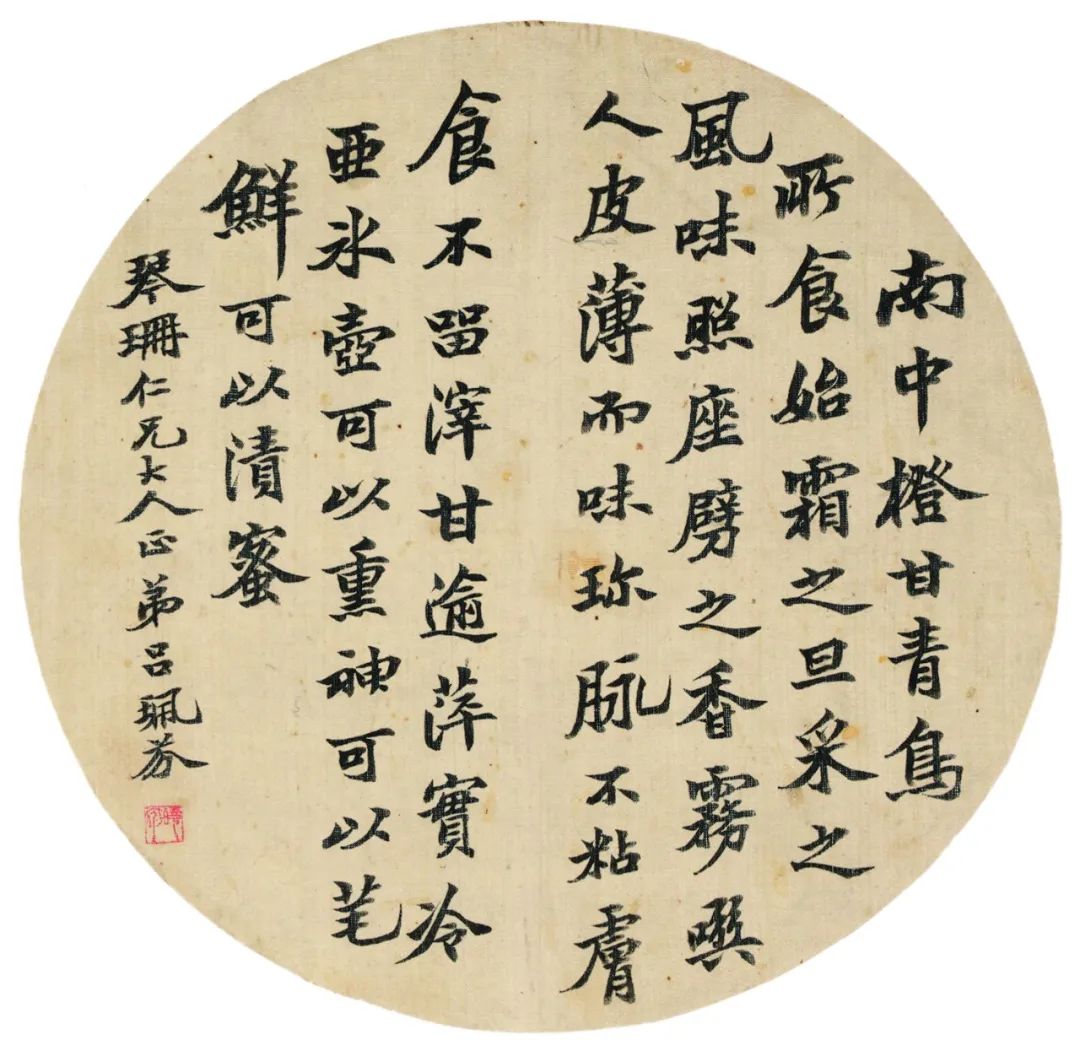 南中橙甘青鳥
所食始霜之旦采之
風味照座劈之香霧噀
人皮薄而味珍脉不粘膚
食不留滓甘逾萍實冷
亜氷壺可以熏神可以芼
鮮可以漬蜜
琴珊仁兄大人正弟吕珮芬